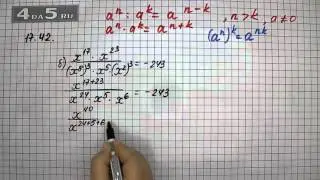 4DA5.RU
aⁿ : aᵏ = aⁿ⁻ᵏ, n > k, a ≠ 0
aⁿ · aᵏ = aⁿ⁺ᵏ (aⁿ)ᵏ = aⁿᵏ
17.42.
б) x¹⁷ · x²³ / (x⁸)³ · x⁵ · (x²)³ = -243
x¹⁷⁺²³ / x²⁴ · x⁵ · x⁶ = -243
x⁴⁰ / x²⁴⁺⁵⁺⁶